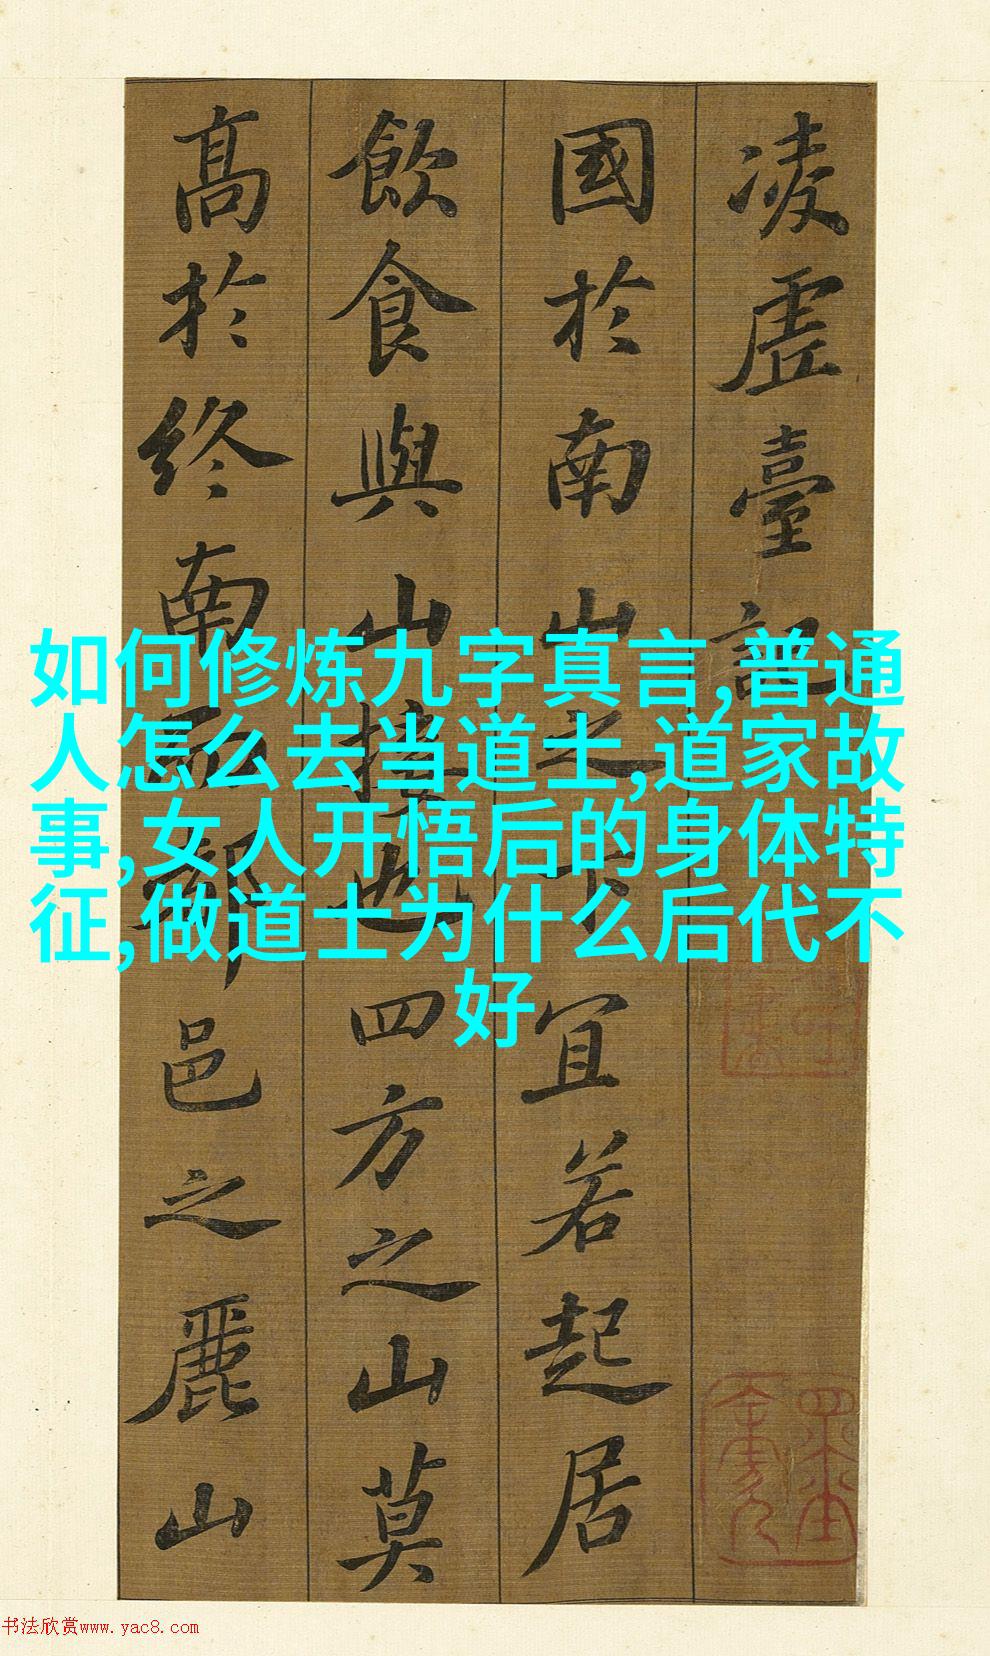 凌虛臺記
國於南山之下宜若起居
飲食與山接也四方之山莫
高於終南而都邑之麗山
如何修炼九字真言,普通
人怎么去当道士,道家故
事,女人开悟后的身体特
征,做道士为什么后代不
好
书法欣赏www.yac8.com